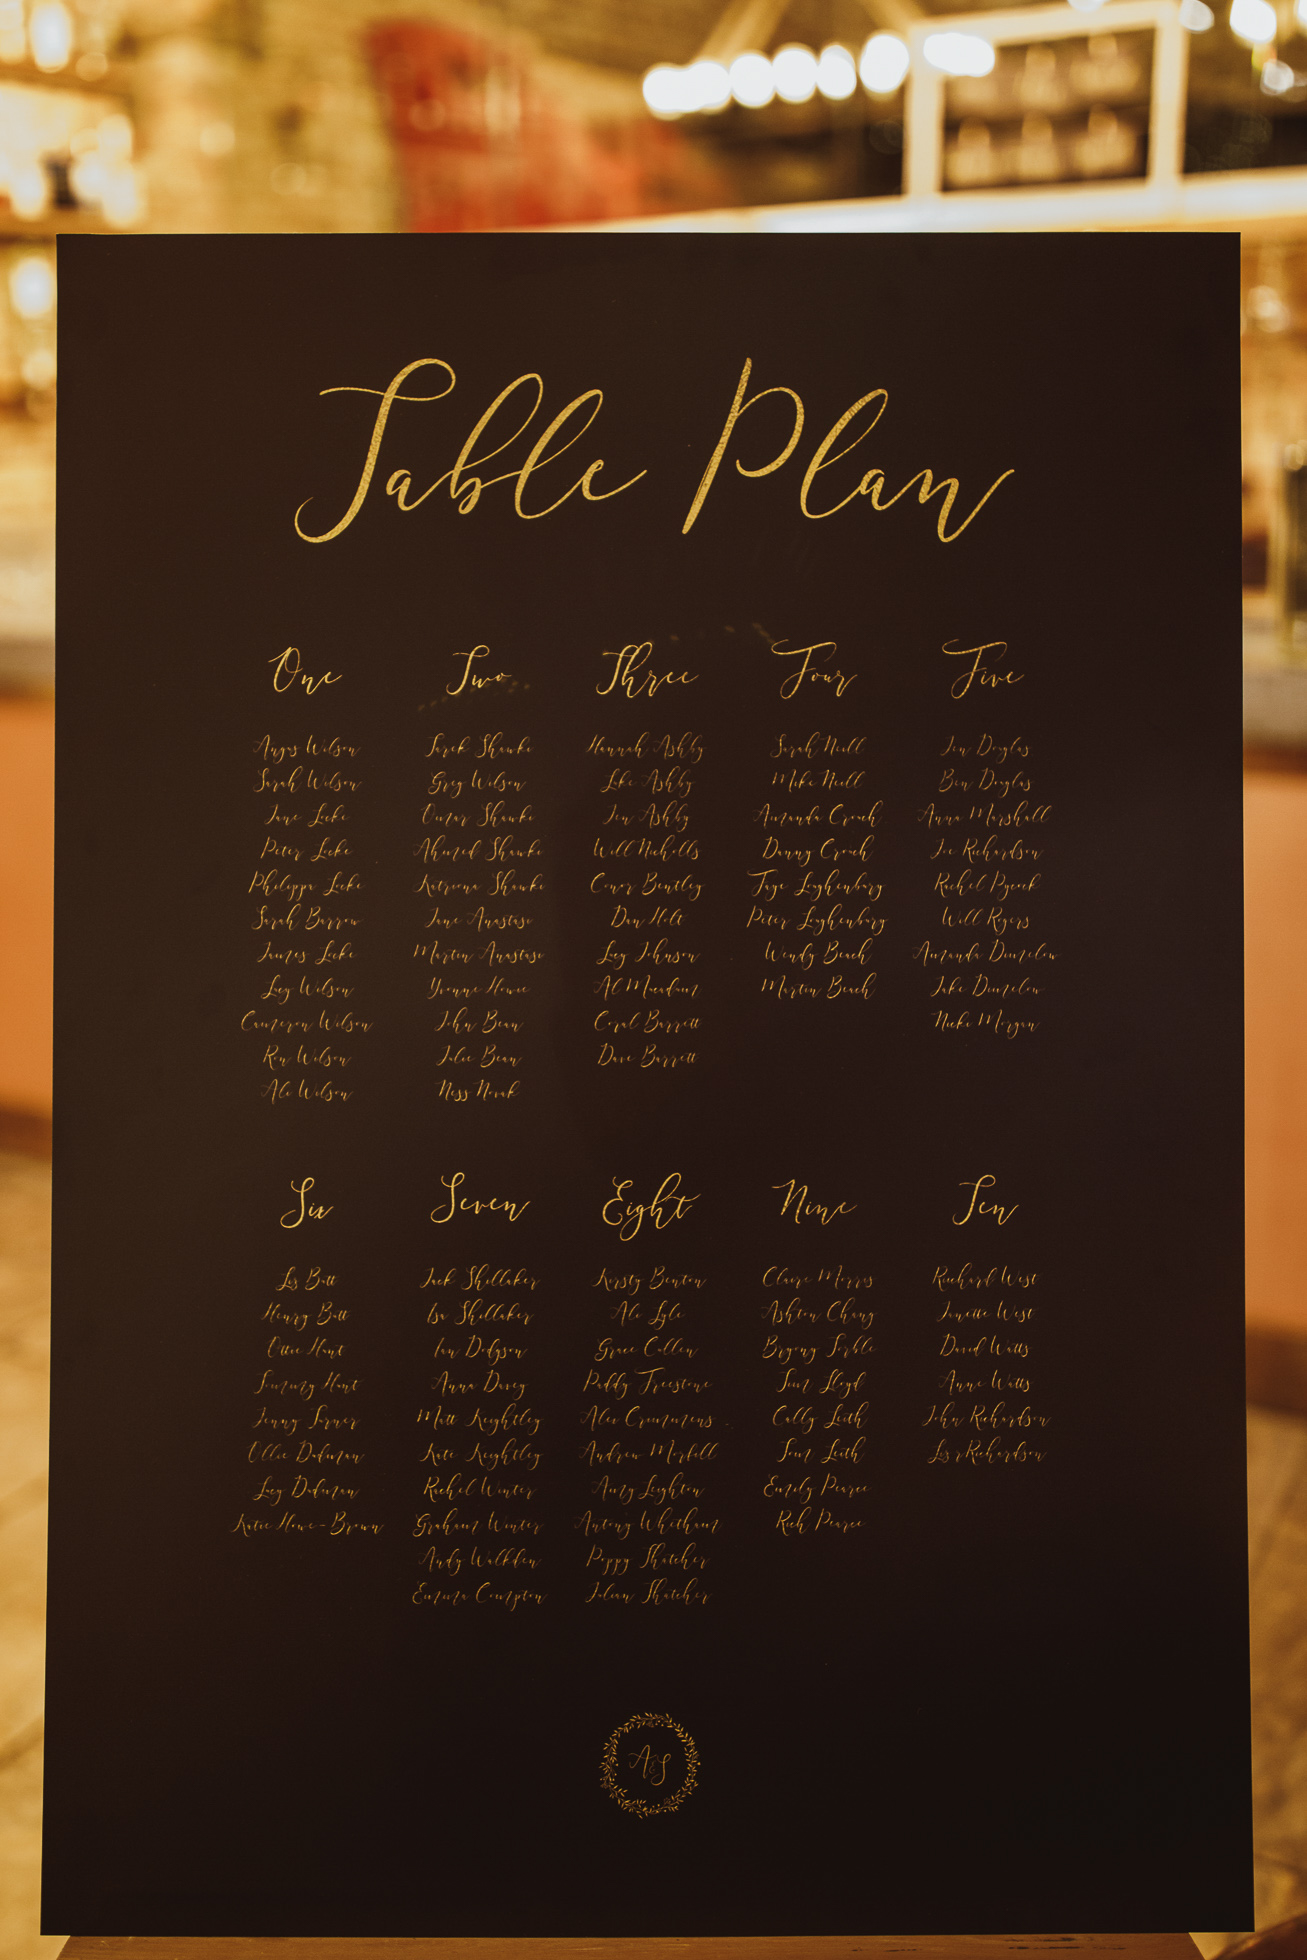 Table Plan
One
Angus Wilson
Sarah Wilson
Jane Locke
Peter Locke
Philippa Locke
Sarah Barrow
James Locke
Lucy Wilson
Cameron Wilson
Ron Wilson
Ale Wilson
Two
Tarek Shawke
Greg Wilson
Omar Shawke
Ahmed Shawke
Katriona Shawke
Jane Anastaso
Martin Anastaso
Yvonne Howie
John Bean
Julie Bean
Ness Novak
Three
Hannah Ashby
Luke Ashby
Jen Ashby
Will Nicholls
Conor Bentley
Dan Holt
Lucy Johnson
Al Macadam
Coral Barrett
Dave Barrett
Four
Sarah Neill
Mike Neill
Amanda Crouch
Danny Crouch
Faye
Peter
Wendy Beach
Martin Beach
Five
Jen Douglas
Ben Douglas
Anna Marshall
Joe Richardson
Rachel Pycock
Will Rogers
Amanda Dimelow
Jake Dimelow
Nicke Morgan
Six
Lis Butt
Henry Butt
Ottie Hunt
Tommy Hunt
Jenny Turner
Ollie Dudman
Lucy Dudman
Katie Howe-Brown
Seven
Jack Shillaker
Isa Shillaker
Ian Dodgson
Anna Davey
Matt Keightley
Kate Keightley
Rachel Winter
Graham Winter
Andy Walkden
Emma Compton
Eight
Kirsty Benton
Ale Lyle
Grace Cullen
Paddy Freestone
Alex Crummens
Andrew Morfill
Amy Leighton
Antony Whetham
Poppy Thatcher
Julian Thatcher
Nine
Claire Morris
Ashton Chang
Bryony Torble
Tom Lloyd
Cally Leith
Tom Leith
Emily Pearce
Rich Pearce
Ten
Richard West
Janette West
David Watts
Anne Watts
John Richardson
Richardson
A&S